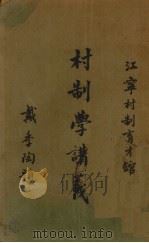 江寧村制育才館
村制學講義
戴季陶